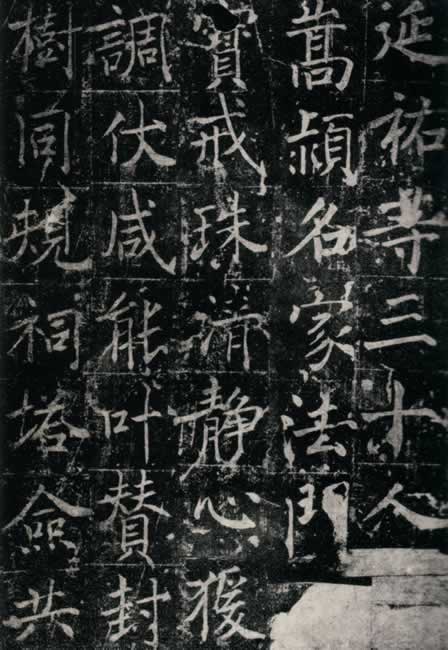 延祐等三十人
嵩潁名家法門
寶戒珠清靜心猨
調伏咸能叶贊封
樹同規祠塔僉共